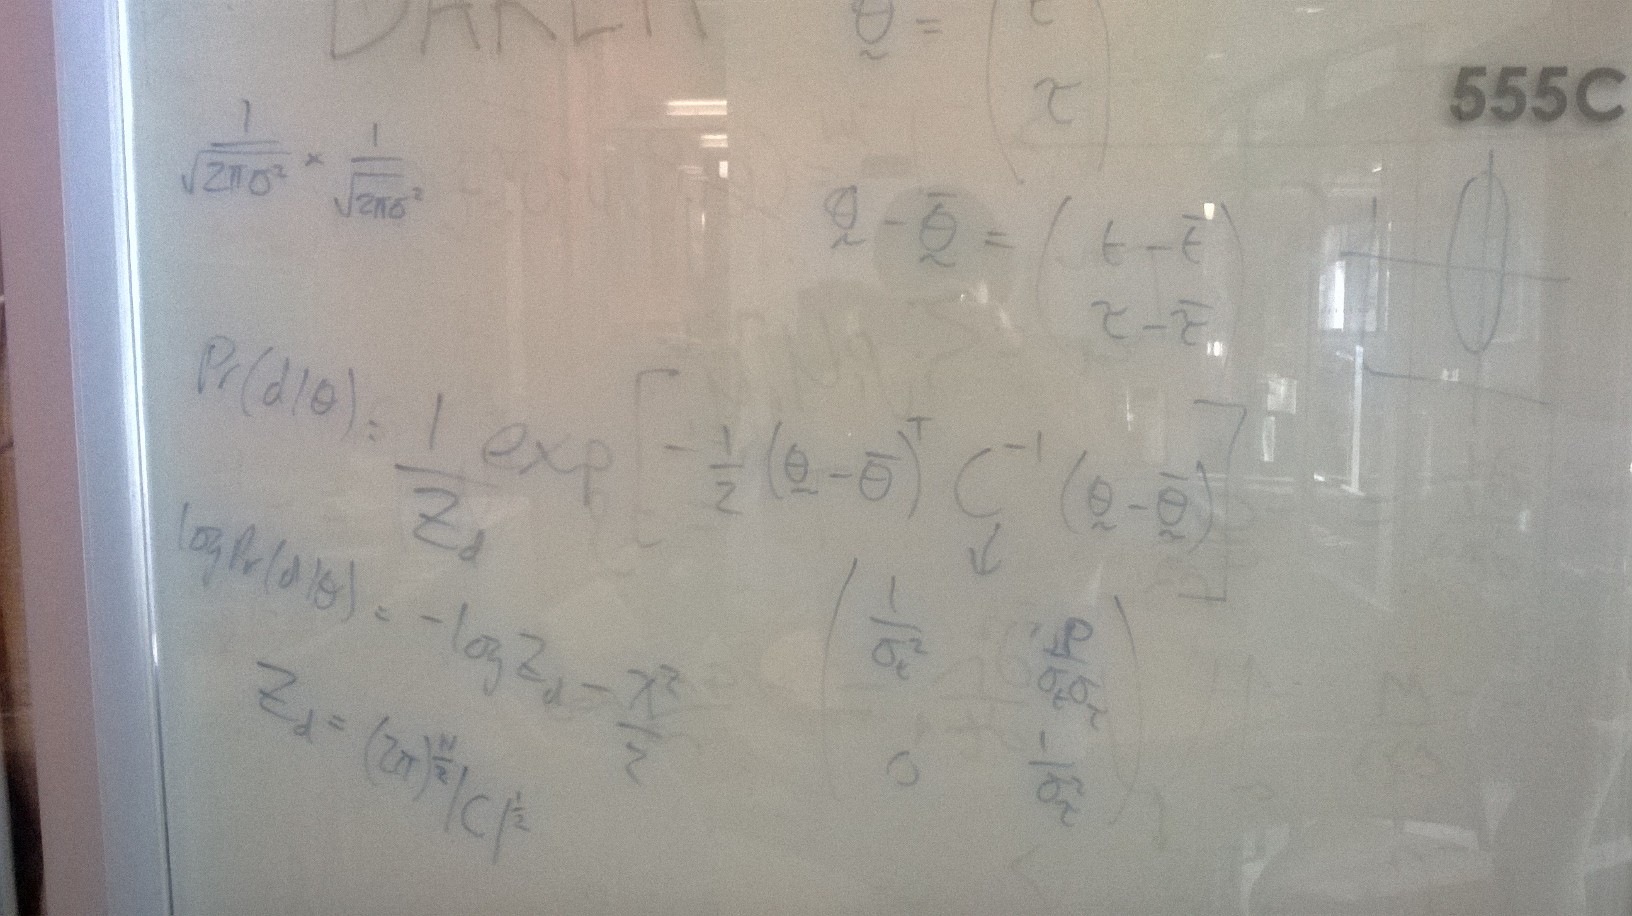 DARER
θ = ( t
τ )
555C
1/√(2πσ²) × 1/√(2πσ²)
θ - θ̄ = ( t - t̄
τ - τ̄ )
Pr(d|θ) = 1/Z_d exp[ -1/2 (θ - θ̄)ᵀ C⁻¹ (θ - θ̄) ]
log Pr(d|θ) = - log Z_d - χ²/2
( 1/σ_t² ρ/σ_tσ_τ
0 1/σ_τ² )
Z_d = (2π)^(N/2) |C|^(1/2)